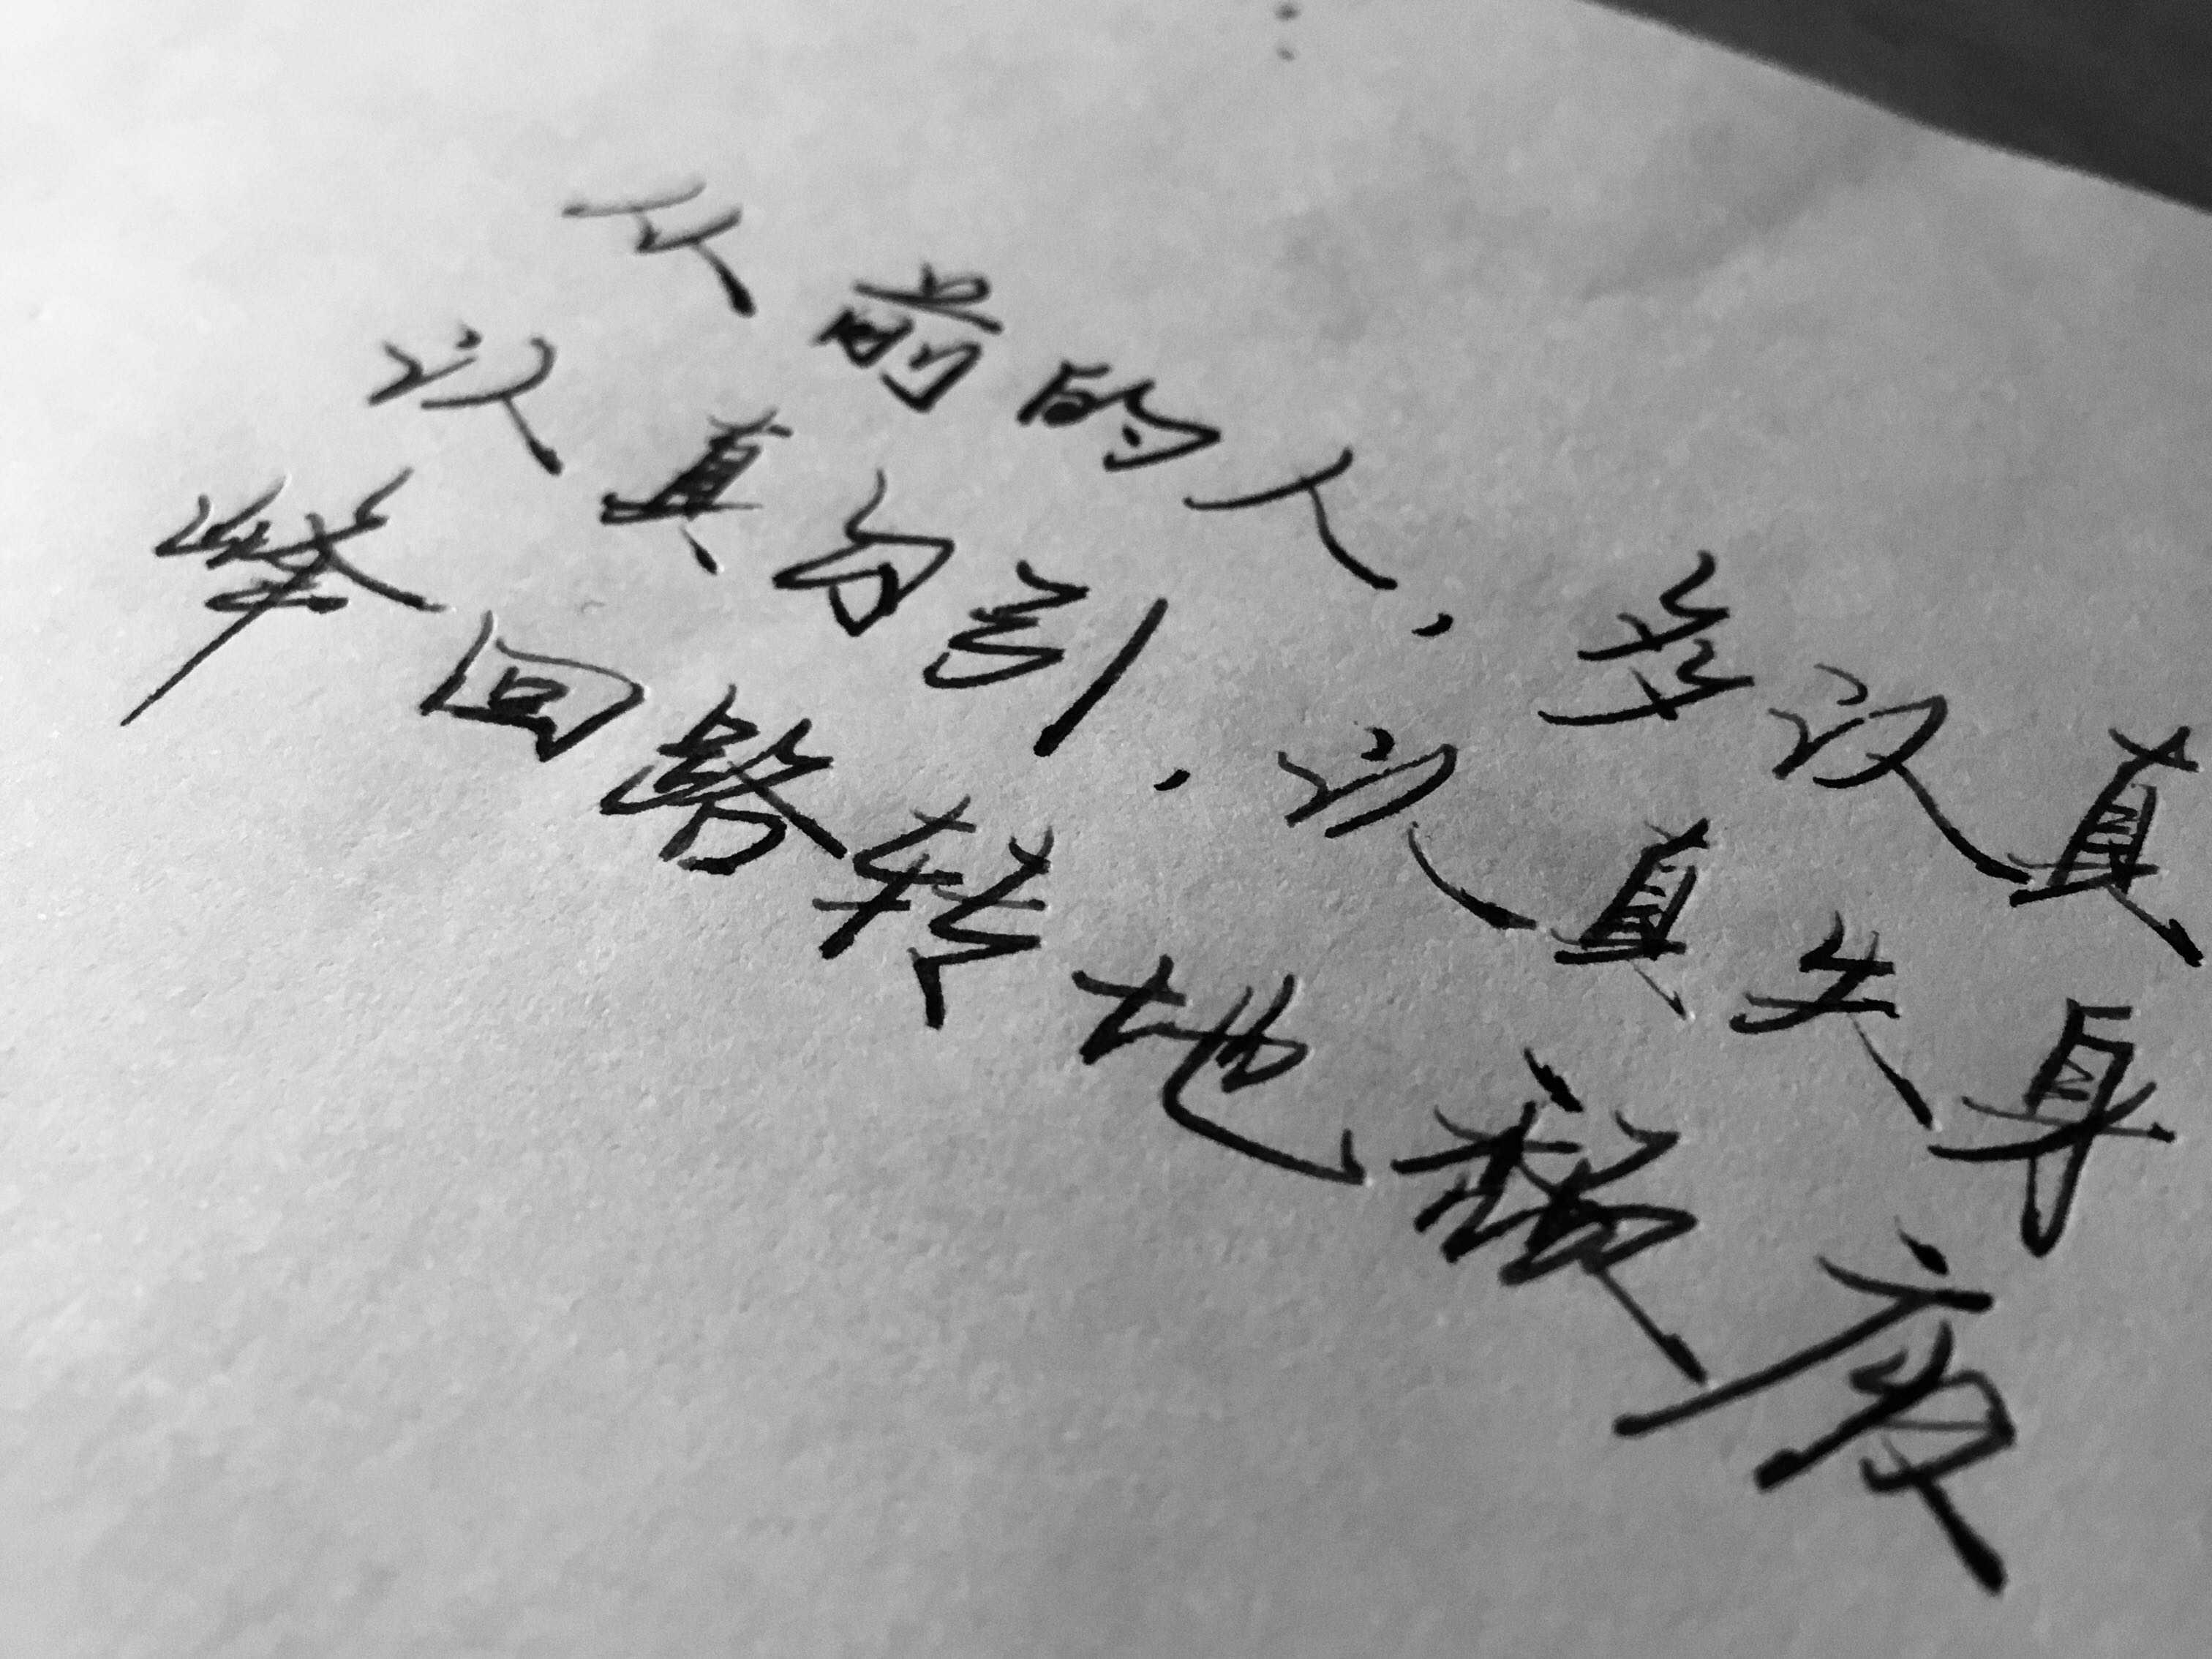 从前的人，多认真
认真勾引，认真失身
峰回路转地颓废